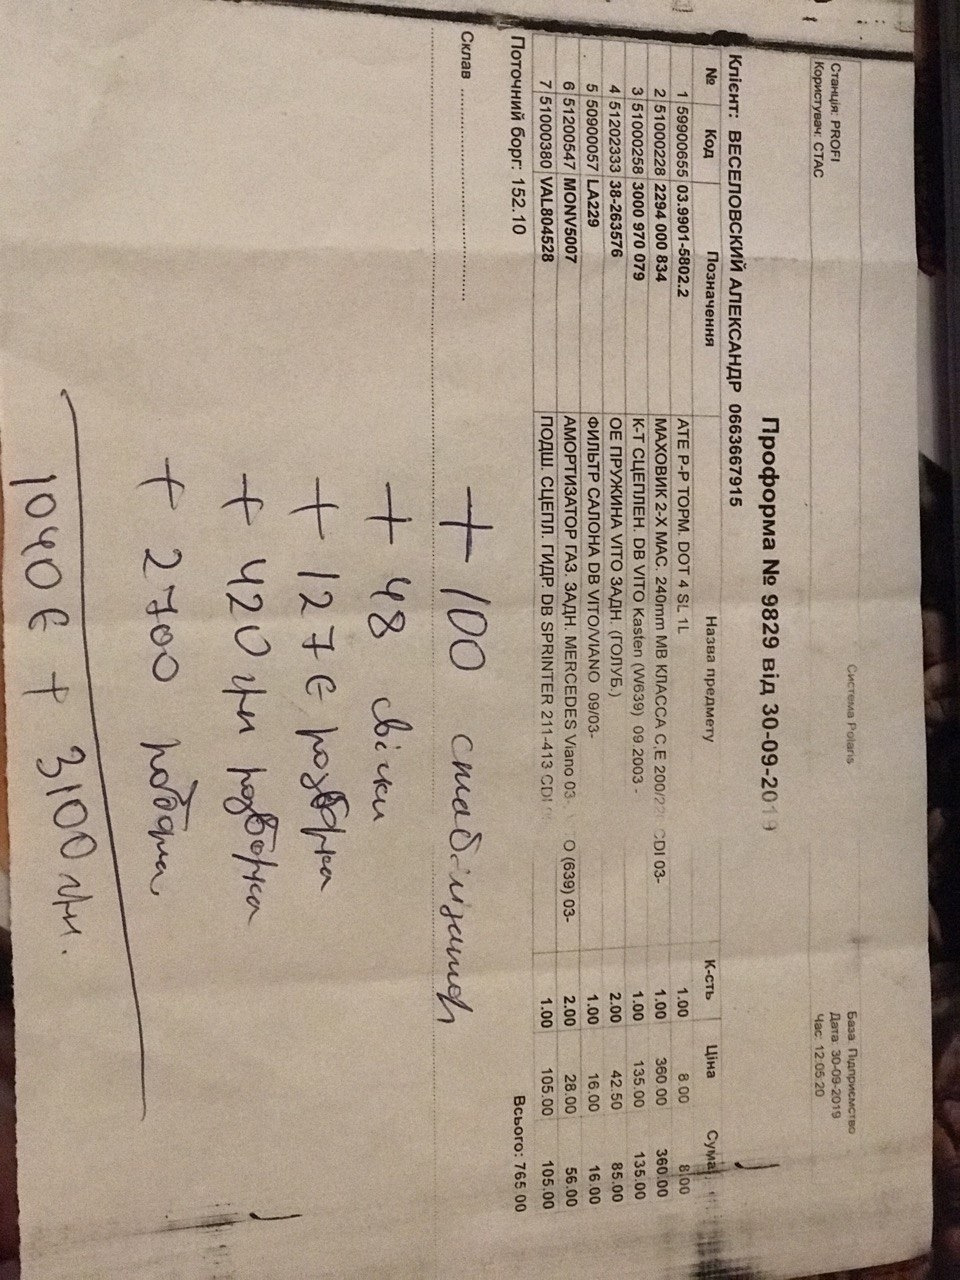 Станція: PROFI
Користувач: СТАС
Система Polaris
База: Підприємство
Дата: 30-09-2019
Час: 12:05:20
Проформа № 9829 від 30-09-2019
Клієнт: ВЕСЕЛОВСКИЙ АЛЕКСАНДР 0663667915
№ Код Позначення Назва предмету К-сть Ціна Сума
1 59900655 03.9901-5802.2 ATE Р-Р ТОРМ. DOT 4 SL 1L 1.00 8.00 8.00
2 51000228 2294 000 834 МАХОВИК 2-Х МАС. 240mm MB КЛАССА C,E 200/22 CDI 03- 1.00 360.00 360.00
3 51000258 3000 970 079 К-Т СЦЕПЛЕН. DB VITO Kasten (W639) 09.2003 - 1.00 135.00 135.00
4 51202333 38-263576 OE ПРУЖИНА VITO ЗАДН. (ГОЛУБ.) 2.00 42.50 85.00
5 50900057 LA229 ФИЛЬТР САЛОНА DB VITO/VIANO 09/03- 1.00 16.00 16.00
6 51200547 MONV5007 АМОРТИЗАТОР ГАЗ. ЗАДН. MERCEDES Viano 03- (639) 03- 2.00 28.00 56.00
7 51000380 VAL804528 ПОДШ. СЦЕПЛ. ГИДР. DB SPRINTER 211-413 CDI 1.00 105.00 105.00
Поточний борг: 152.10 Всього: 765.00
Склав
+ 100 стабілізатор
+ 48 свічки
+ 127 € розборка
+ 420 грн розборка
+ 2700 робота
1040 € + 3100 грн.